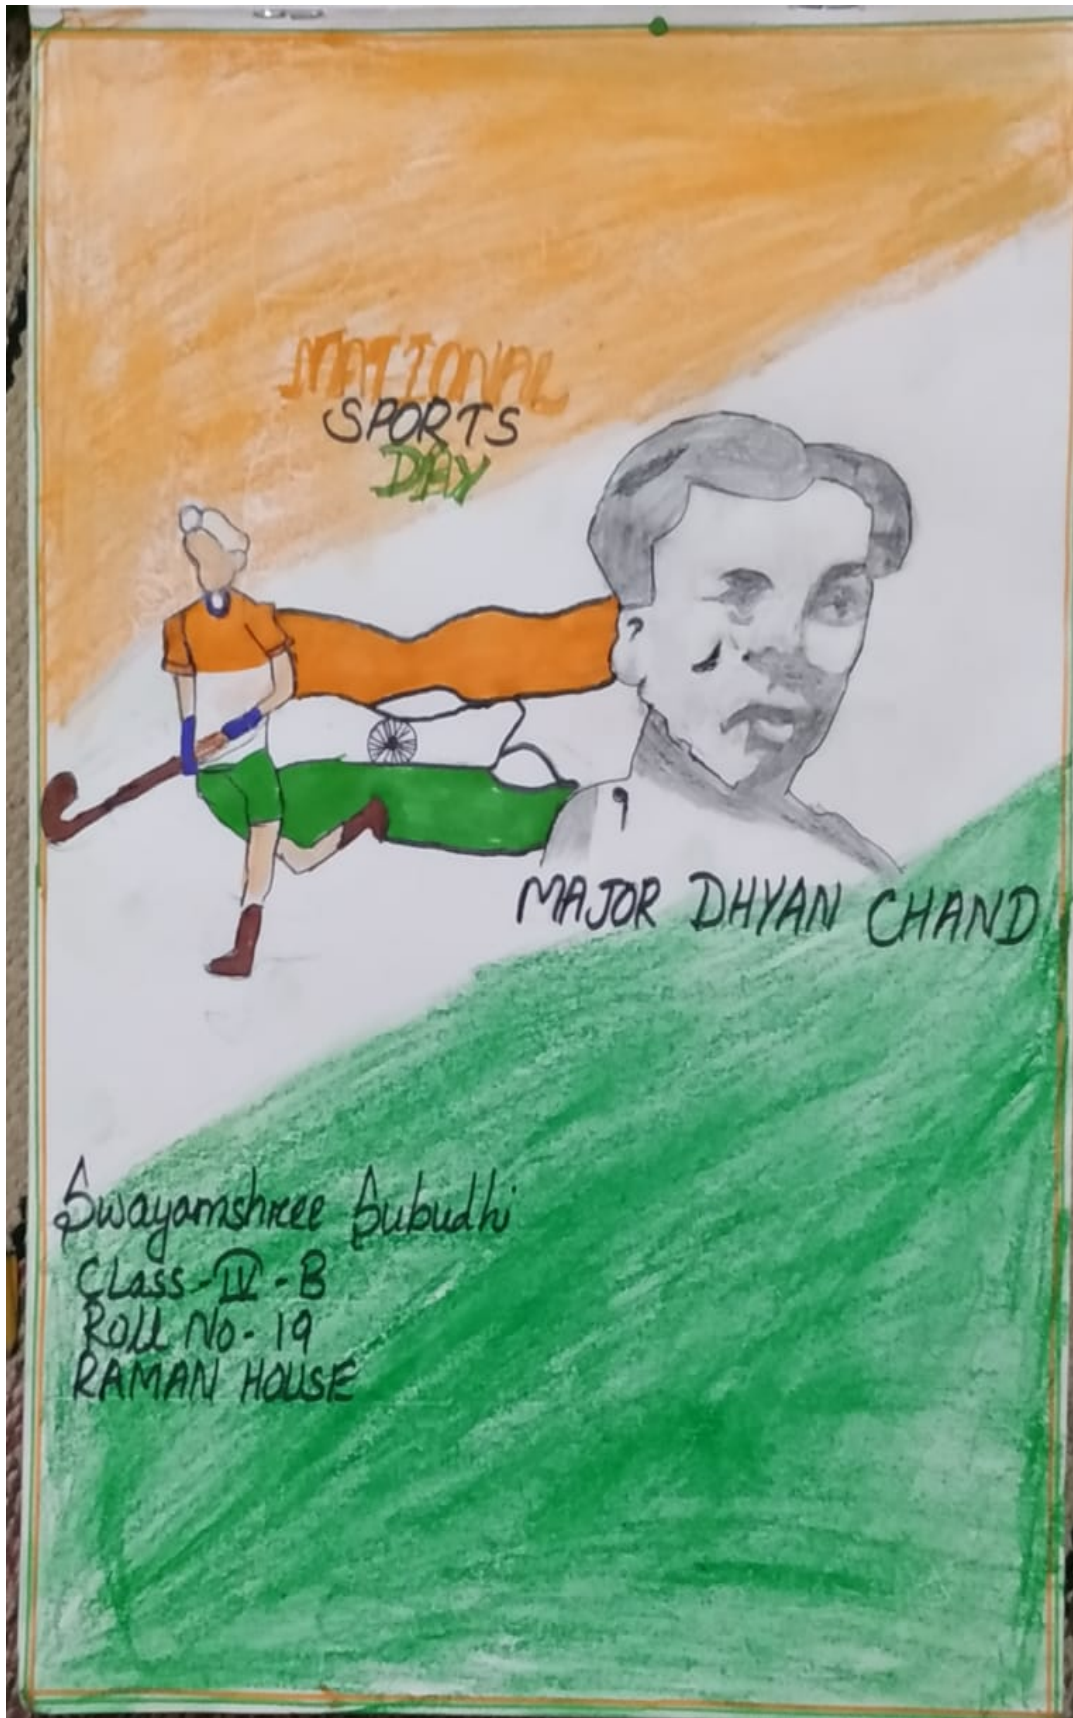 NATIONAL
SPORTS
DAY
MAJOR DHYAN CHAND
Swayamshree Subudhi
Class-IV-B
Roll No-19
RAMAN HOUSE